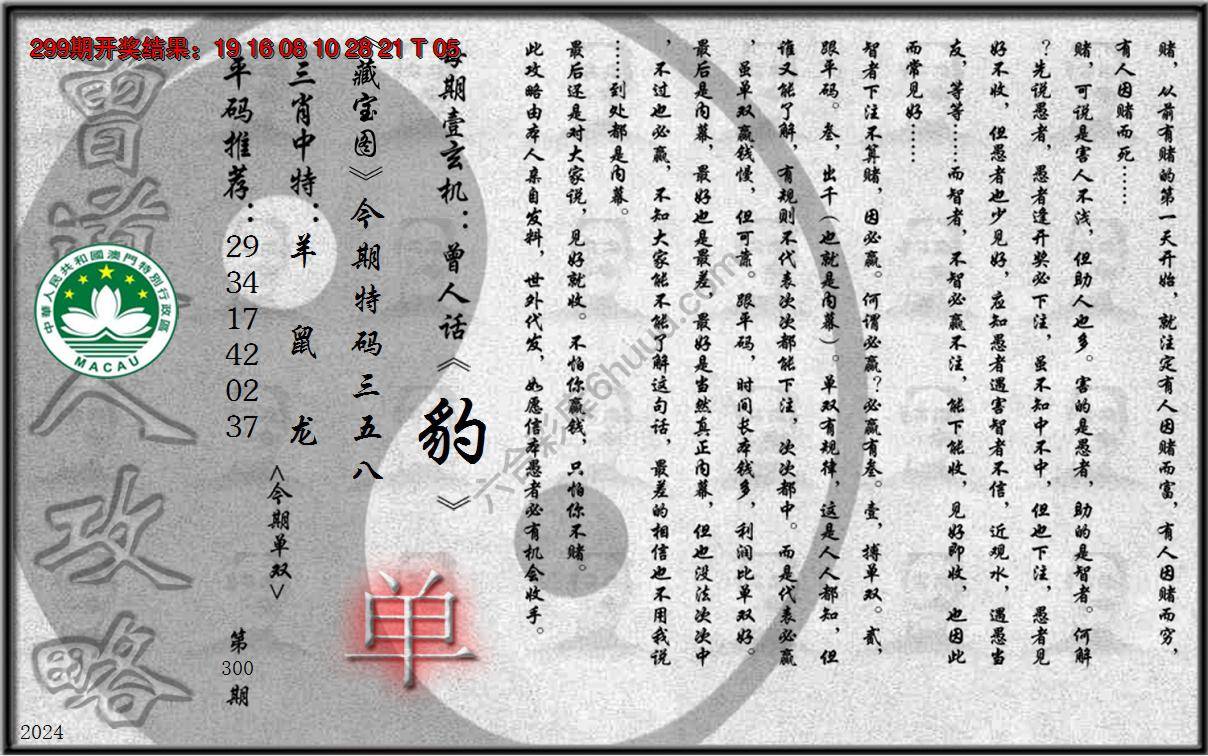 299期开奖结果：19 16 08 10 28 21 T 05
赌，从前有赌的第一天开始，就注定有人因赌而富，有人因赌而穷，
有人因赌而死……
赌，可说是害人不浅，但助人也多。害的是愚者，助的是智者。何解
？先说愚者，愚者逢开奖必下注，虽不知中不中，但也下注，愚者见
好不收，但愚者也少见好，应知愚者遇害智者不信，近观水，遇愚当
友，等等……而智者，不智必赢不注，能下能收，见好即收，也因此
而常见好……
智者下注不算赌，因必赢。何谓必赢？必赢有叁。壹，搏单双。贰，
跟平码。叁，出千（也就是内幕）。单双有规律，这是人人都知，但
谁又能了解，有规则不代表次次都能下注，次次都中。而是代表必赢
，虽单双赢钱慢，但可靠。跟平码，时间长本钱多，利润比单双好。
最后是内幕，最好也是最差，最好是当然真正内幕，但也没法次次中
，不过也必赢，不知大家能不能了解这句话，最差的相信也不用我说
……到处都是内幕。
最后还是对大家说，见好就收。不怕你赢钱，只怕你不赌。
此攻略由本人亲自发料，世外代发，如愿信本愚者必有机会收手。
每期壹玄机：曾人话《豹》
《藏宝图》今期特码三五八
单
三肖中特：羊 鼠 龙
<今期单双>
平码推荐：29 34 17 42 02 37
第300期
曾道人攻略
中華人民共和國澳門特別行政區
MACAU
2024